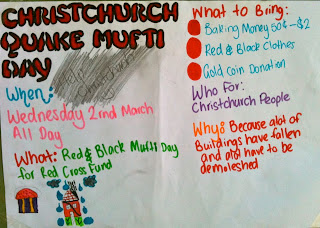 CHRISTCHURCH
QUAKE MUFTI
DAY
When:
Wednesday 2nd March
All Day
What: Red & Black Mufti Day
for Red Cross Fund
What to Bring:
Baking Money 50¢-$2
Red & Black Clothes
Gold Coin Donation
Who For:
Christchurch People
Why: Because alot of
Buildings have fallen
and alot have to be
demoleshed.